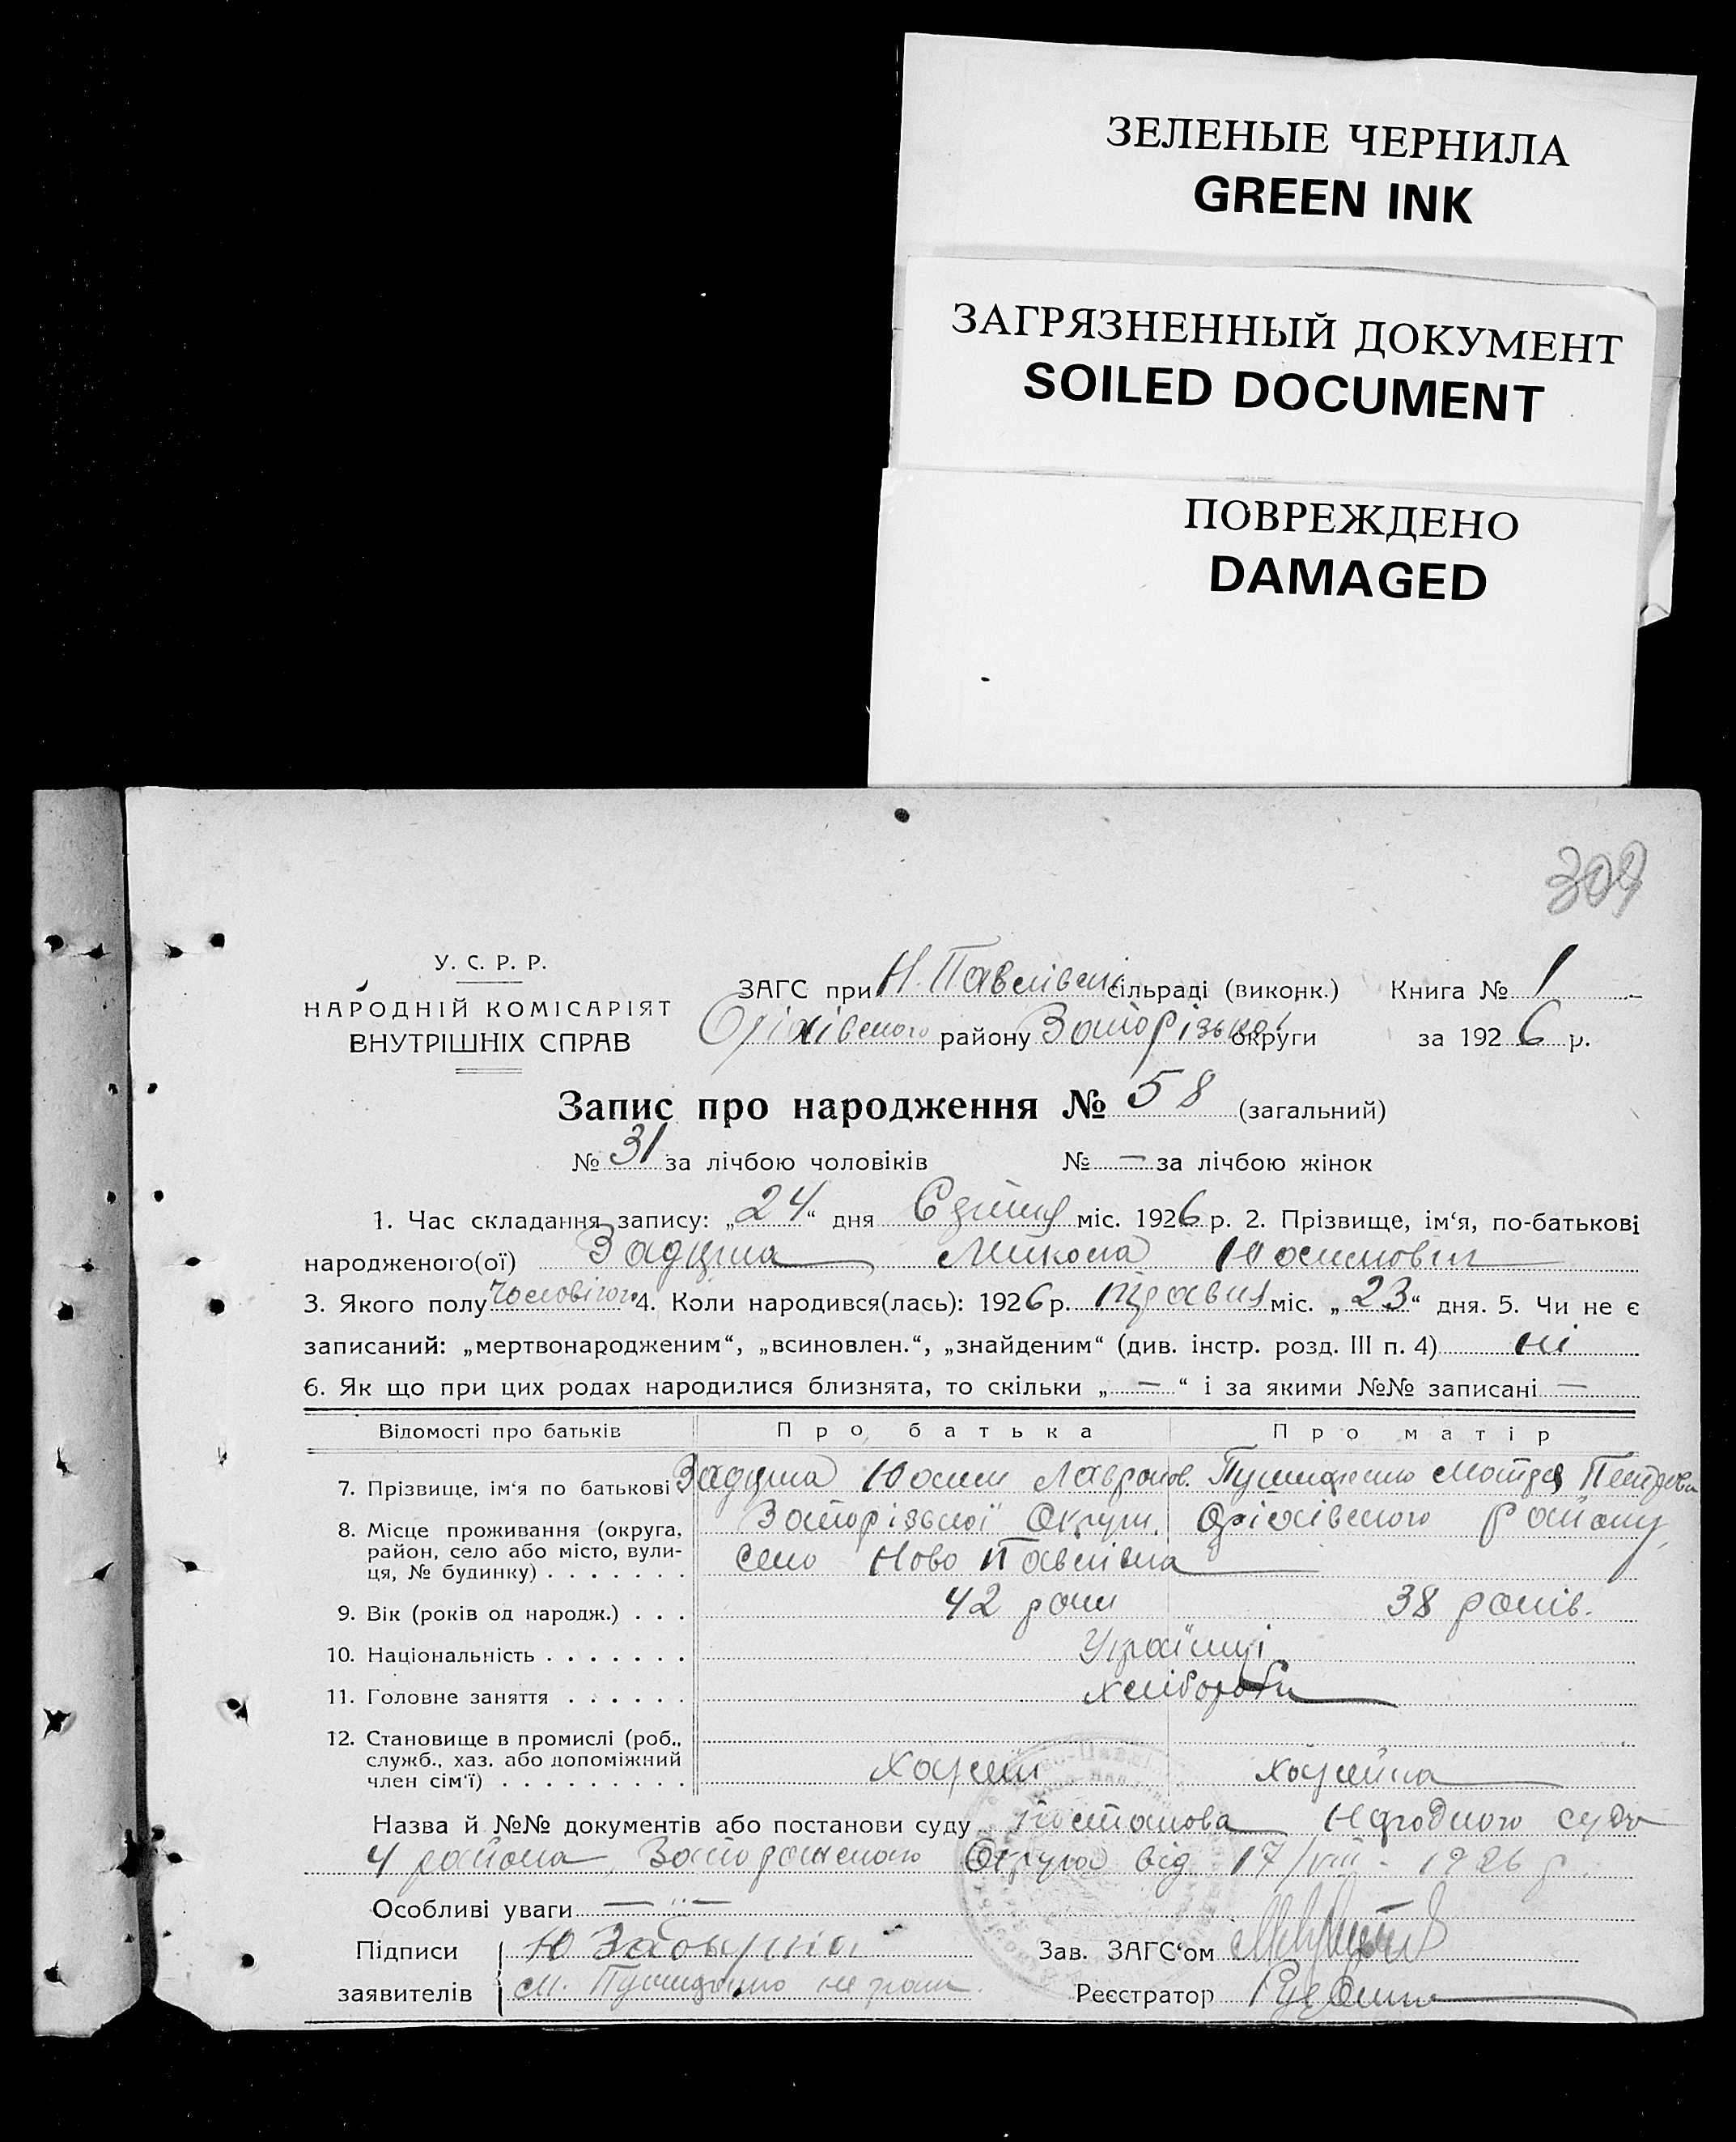 ЗЕЛЕНЫЕ ЧЕРНИЛА
GREEN INK
ЗАГРЯЗНЕННЫЙ ДОКУМЕНТ
SOILED DOCUMENT
ПОВРЕЖДЕНО
DAMAGED
309
У. С. Р. Р.
НАРОДНІЙ КОМІСАРІЯТ
ВНУТРІШНІХ СПРАВ
ЗАГС при Н. Павлівські сільраді (виконк.) Книга № 1
Оріхівського району Запорізької округи за 1926 р.
Запис про народження № 58 (загальний)
№ 31 за лічбою чоловіків № — за лічбою жінок
1. Час складання запису: „24“ дня міс. 1926 р. 2. Прізвище, ім‘я, по-батькові
народженого(ої) Микола
3. Якого полу чоловічого 4. Коли народився(лась): 1926 р. травня міс. „23“ дня. 5. Чи не є
записаний: „мертвонародженим“, „всиновлен.“, „знайденим“ (див. інстр. розд. III п. 4) ні
6. Як що при цих родах народилися близнята, то скільки „ — “ і за якими №№ записані —
Відомості про батьків Про батька Про матір
7. Прізвище, ім‘я по батькові
8. Місце проживання (округа, район, село або місто, вулиця, № будинку) . . . . . . . Запорізької Округи, Оріхівського району,
село Ново Павлівка
9. Вік (років од народж.) . . . 42 роки 38 років.
10. Національність . . . . . . . Українці
11. Головне заняття . . . . . . хлібороби
12. Становище в промислі (роб., служб., хаз. або допоміжний член сім‘ї) . . . . . . . . . хазяїн хазяйка
Назва й №№ документів або постанови суду Постанова Народного суда
4 района, Округа від 17/VIII - 1926 р.
Особливі уваги — „ —
Підписи
заявителів
Зав. ЗАГС‘ом
Реєстратор